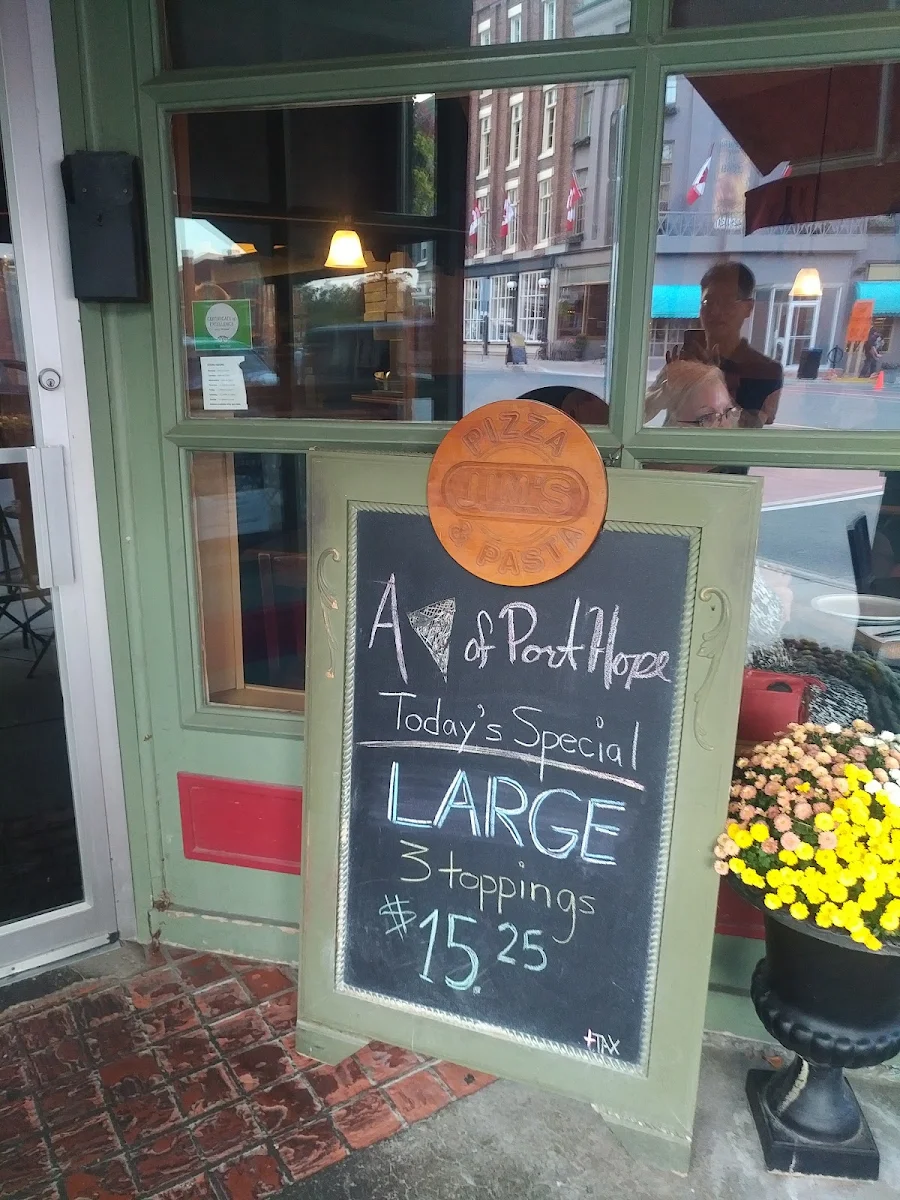 PIZZA
JIM'S
& PASTA
A of Port Hope
Today's Special
LARGE
3 toppings
$15.25
+TAX